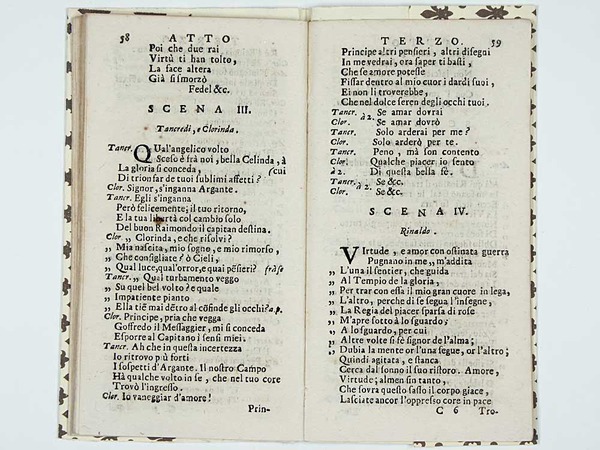 58 ATTO
Poi che due rai
Virtù ti han tolto,
La face altera
Già si smorzò
Fedel &c.
SCENA III.
Tancredi, e Clorinda.
Tancr. QUal'angelico volto
Sceso è frà noi, bella Celinda, à
La gloria si conceda, (cui
Di trionfar de tuoi sublimi affetti?
Clor. Signor, s'inganna Argante.
Tancr. Egli s'inganna
Però felicemente; il tuo ritorno,
E la tua libertà col cambio solo
Del buon Raimondo il capitan destina.
Clor. „ Clorinda, e che risolvi?
„ Mia nascita, mio sogno, e mio rimorso,
„ Che consigliate? ò Cieli,
„ Qual luce, qual'orror, e quai pẽsieri? frà se
Tancr. „ Qual turbamento veggo
„ Su quel bel volto? e quale
„ Impatiente pianto
„ Ella tiẽ mai dẽtro al cõfinde gli occhi? a p.
Clor. Principe, pria che vegga
Goffredo il Messaggier, mi si conceda
Esporre al Capitano i sensi miei.
Tancr. Ah che in questa incertezza
Io ritrovo più forti
I sospetti d'Argante. Il nostro Campo
Hà qualche volto in se, che nel tuo core
Trovò l'ingresso.
Clor. Io vaneggiar d'amore!
Prin-
TERZO. 59
Principe altri pensieri, altri disegni
In me vedrai, ora saper ti basti,
Che se amore potesse
Fissar dentro al mio cuor i dardi suoi,
Ei non li troverebbe,
Che nel dolce seren degli occhi tuoi.
Tancr. à 2. Se amar dovrai
Clor. Se amar dovrò
Tancr. Solo arderai per me?
Clor. Solo arderò per te.
Tancr. Peno, mà son contento
Clor. Qualche piacer io sento
à 2. Di questa bella fè.
Tancr. à 2. Se &c.
Clor. Se &c.
SCENA IV.
Rinaldo.
VIrtude, e amor con ostinata guerra
Pugnano in me „ m'addita
„ L'una il sentier, che guida
„ Al Tempio de la gloria,
„ Per trar con essa il mio gran cuore in lega,
„ L'altro, perche di se segua l'insegne,
„ La Regia del piacer sparsa di rose
„ M'apre sotto à lo sguardo;
„ A lo sguardo, per cui
„ Altre volte si fè signor de l'alma;
„ Dubia la mente or l'una segue, or l'altro;
Quindi agitata, e stanca
Cerca dal sonno il suo ristoro. Amore,
Virtude; almen sin tanto,
Che sovra questo sasso il corpo giace,
Lasciate ancor l'oppresso core in pace
C 6 Tro-